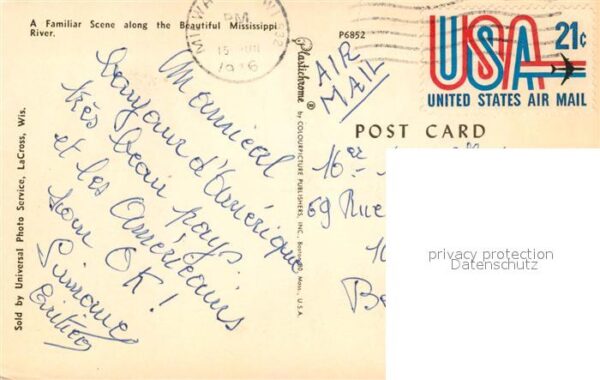 A Familiar Scene along the Beautiful Mississippi
River.
P6852
PM
15 JUN
1976
USA 21c
UNITED STATES AIR MAIL
AIR
MAIL
Un amical
bonjour d'Amérique
très beau pays
et les Américains
son OK!
Simone
POST CARD
16er
69 Rue
Be
Plastichrome ® by COLOURPICTURE PUBLISHERS, INC., Boston 30, Mass., U.S.A.
Sold by Universal Photo Service, LaCross, Wis.
privacy protection
Datenschutz